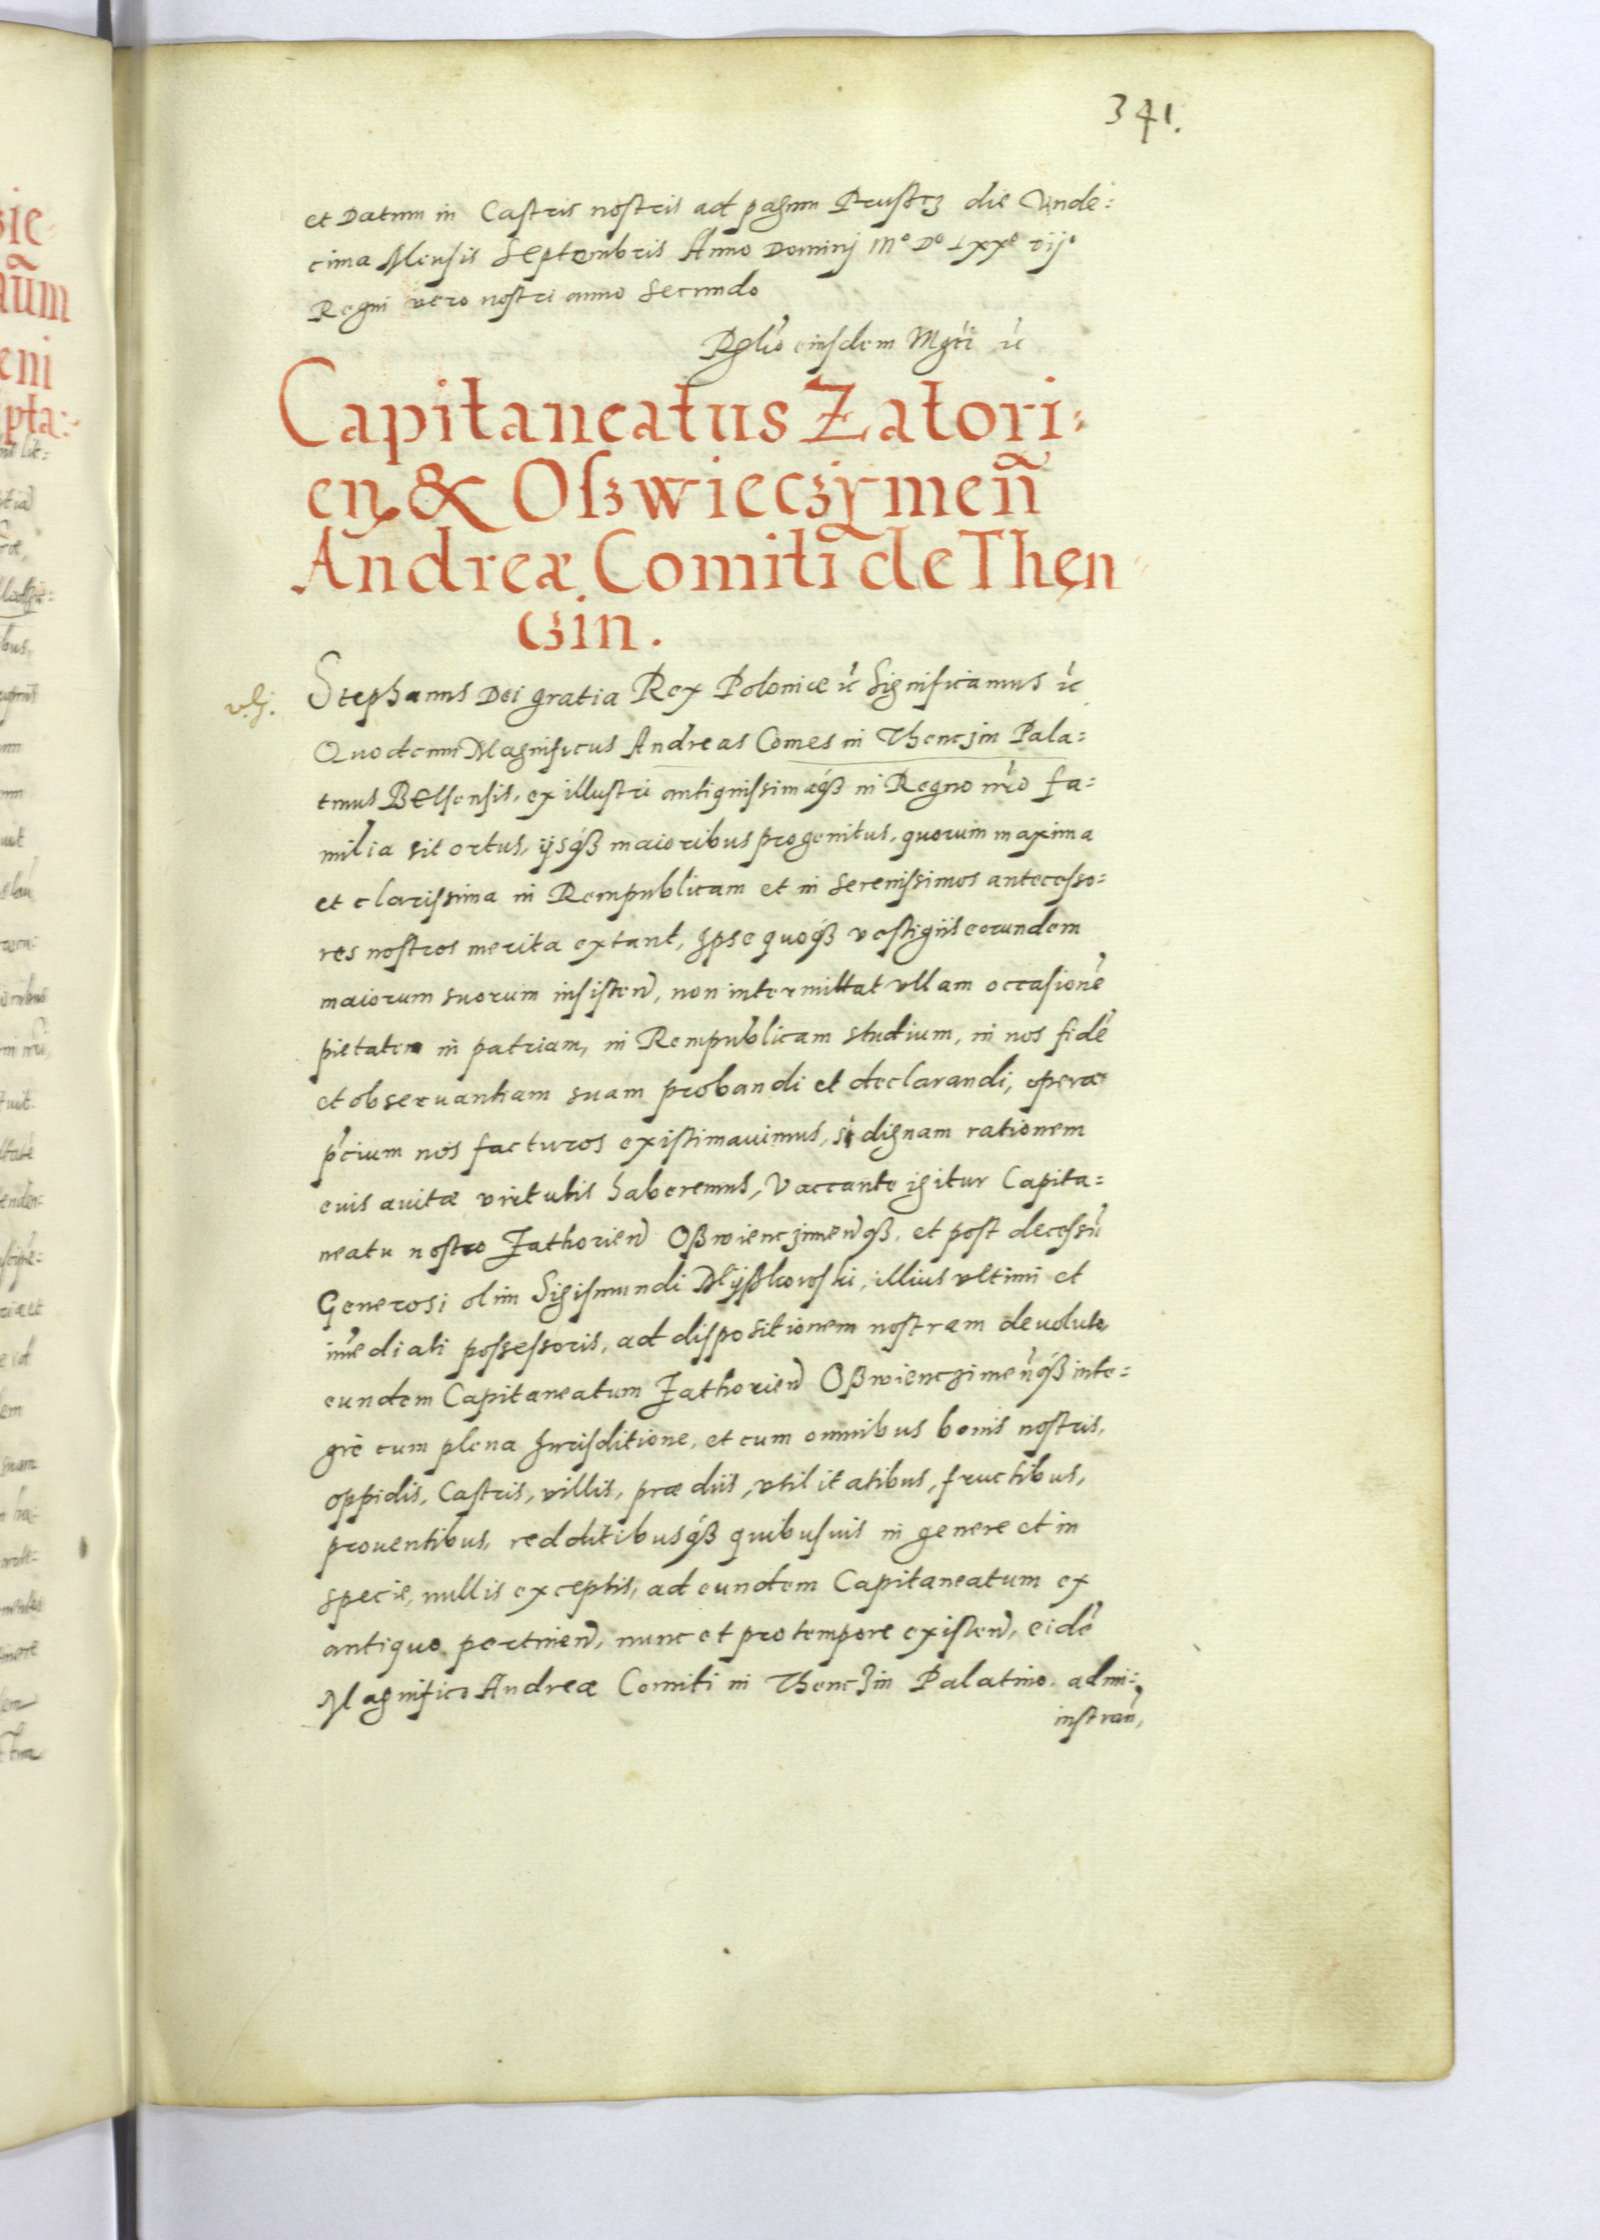 341.
et Datum in Castris nostris ad pagum Prustcz die Unde:
cima Mensis Septembris Anno Dominj Mº Dº Lxxº vijº
Regni vero nostri anno secundo
Rel̃o eiusdem Mgcĩ ic̃
Capitaneatus Zatori:
eñ & Oßwieczÿmeñ
Andreæ Comiti de Then
czin.
Stephanus Dei gratia Rex Poloniæ ic̃ Significamus ic̃
Quod cum Magnificus Andreas Comes in Thenczin Pala:
tinus Belsensis, ex illustri antiquissimaq́ꝫ in Regno nr̃o fa:
milia sit ortus, ijsq́ꝫ maioribus progenitus, quorum maxima
et clarissima in Rempublicam et in Serenissimos antecesso:
res nostros merita extant, Ipse quoq́ꝫ vestigiis eorundem
maiorum suorum insisteñ, non intermittat vllam occasionẽ
pietatem in patriam, in Rempublicam studium, in nos fidẽ
et obseruantiam suam probandi et declarandi, operæ
p̃cium nos facturos existimauimus, si dignam rationem
euis auitæ virtutis haberemus, Vaccante igitur Capita:
neatu nostro Zathorieñ Oßwienczimeñq́ꝫ, et post decessũ
Generosi olim Sigismundi Mÿßkowski, illius vltimi et
im̃ediati possessoris, ad dispositionem nostram deuoluto
eundem Capitaneatum Zathorieñ Oßwienczimeñq́ꝫ inte:
grè cum plena Jurisditione, et cum omnibus bonis nostris,
oppidis, Castris, villis, prædiis, vtilitatibus, fructibus,
prouentibus, redditibusq́ꝫ quibusuis in genere et in
specie, nullis exceptis, ad eundem Capitaneatum ex
antiquo pertineñ, nunc et pro tempore existeñ, eidẽ
Magnifico Andreæ Comiti in Thenczin Palatino. admi:
instrañ,